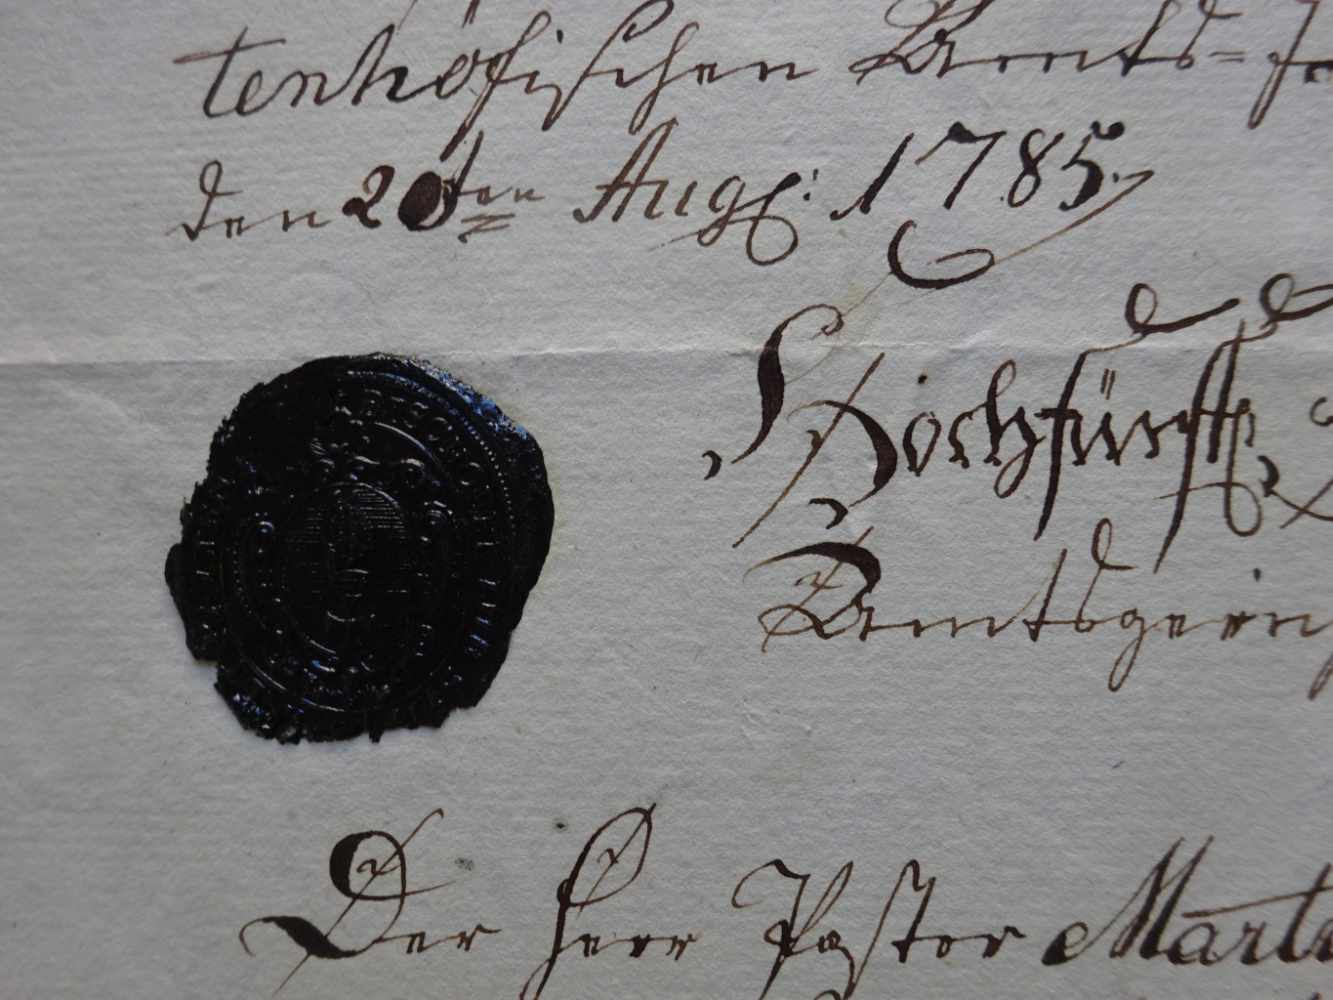 tenhöfischen Amts-
den 20ten Augs: 1785.
Hochfürstl
Amtsgerin
Der Herr Pastor Mart